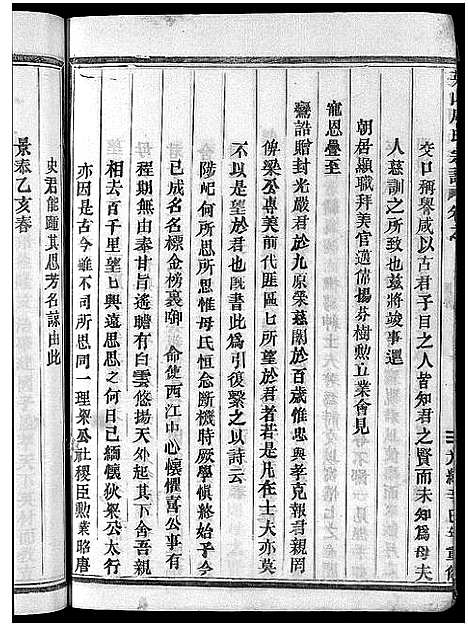 交口稱譽咸以古君子目之人皆知君之賢而未知為母夫
人慈訓之所致也茲將竣事還
朝居顯職拜美官邁倫揚芬樹勲立業會見
寵恩疊至
鸞誥贈封光嚴君於九原榮慈闈於百歲惟忠與孝克報君親罔
俾梁公專美前代匪區匕所望於君者若是凡在士大亦莫
不以是望於君也旣書此為引復繫之以詩云
陟屺何所思所思惟母氏恒念斷機時厥學慎終始子今
已成名名標金榜裏啣 命使西江中心懷懼喜公事有
程期無由奉甘旨遙瞻有白雲悠揚天外起其下舍吾親
相去百千里望匕與遠思思之何日已緬懷狄梁公太行
亦因是古今雖不同所思同一理梁公社稷臣勲業昭唐
史君能踵其思芳名諒由此
景泰乙亥春
宗譜